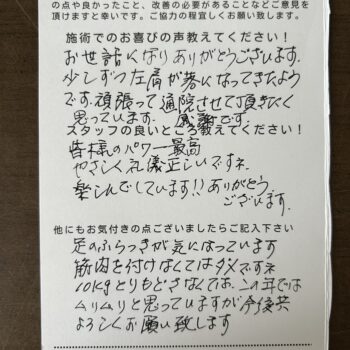 の点や良かったこと、改善の必要があることなどご意見を
頂けますと幸いです。ご協力の程宜しくお願い致します。
施術でのお喜びの声教えてください!
お世話になりありがとうございます.
少しずつ左肩が楽になってきたよう
です.頑張って通院させて頂きたく
思っています. 感謝です.
スタッフの良いところ教えてください!
皆様のパワー最高
やさしく礼儀正しいですネ.
楽しんでしています!!ありがとう
ございます.
他にもお気付きの点ございましたらご記入下さい
足のふらつきが気になっています
筋肉を付けなくてはダメですネ
10kgとりもどさなくては、この年では
ムリムリと思っていますが今後共
よろしくお願い致します